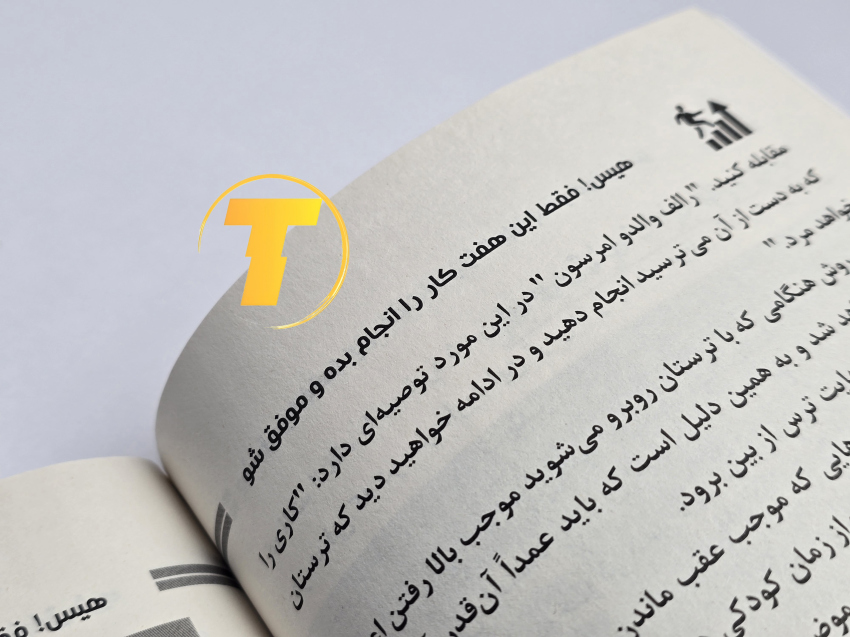 هیس! فقط این هفت کار را انجام بده و موفق شو
مقابله کنید. "رالف والدو امرسون "در این مورد توصیه‌ای دارد: "کاری را
که به دست از آن می‌ترسید انجام دهید و در ادامه خواهید دید که ترستان
خواهد مرد. "
روش هنگامی که با ترستان روبرو می‌شوید موجب بالا رفتن
شد و به همین دلیل است که باید عمداً آن‌قدر
ترس از بین برود.
که موجب عقب ماندن
از زمان کودکی
هیس! فقط
T